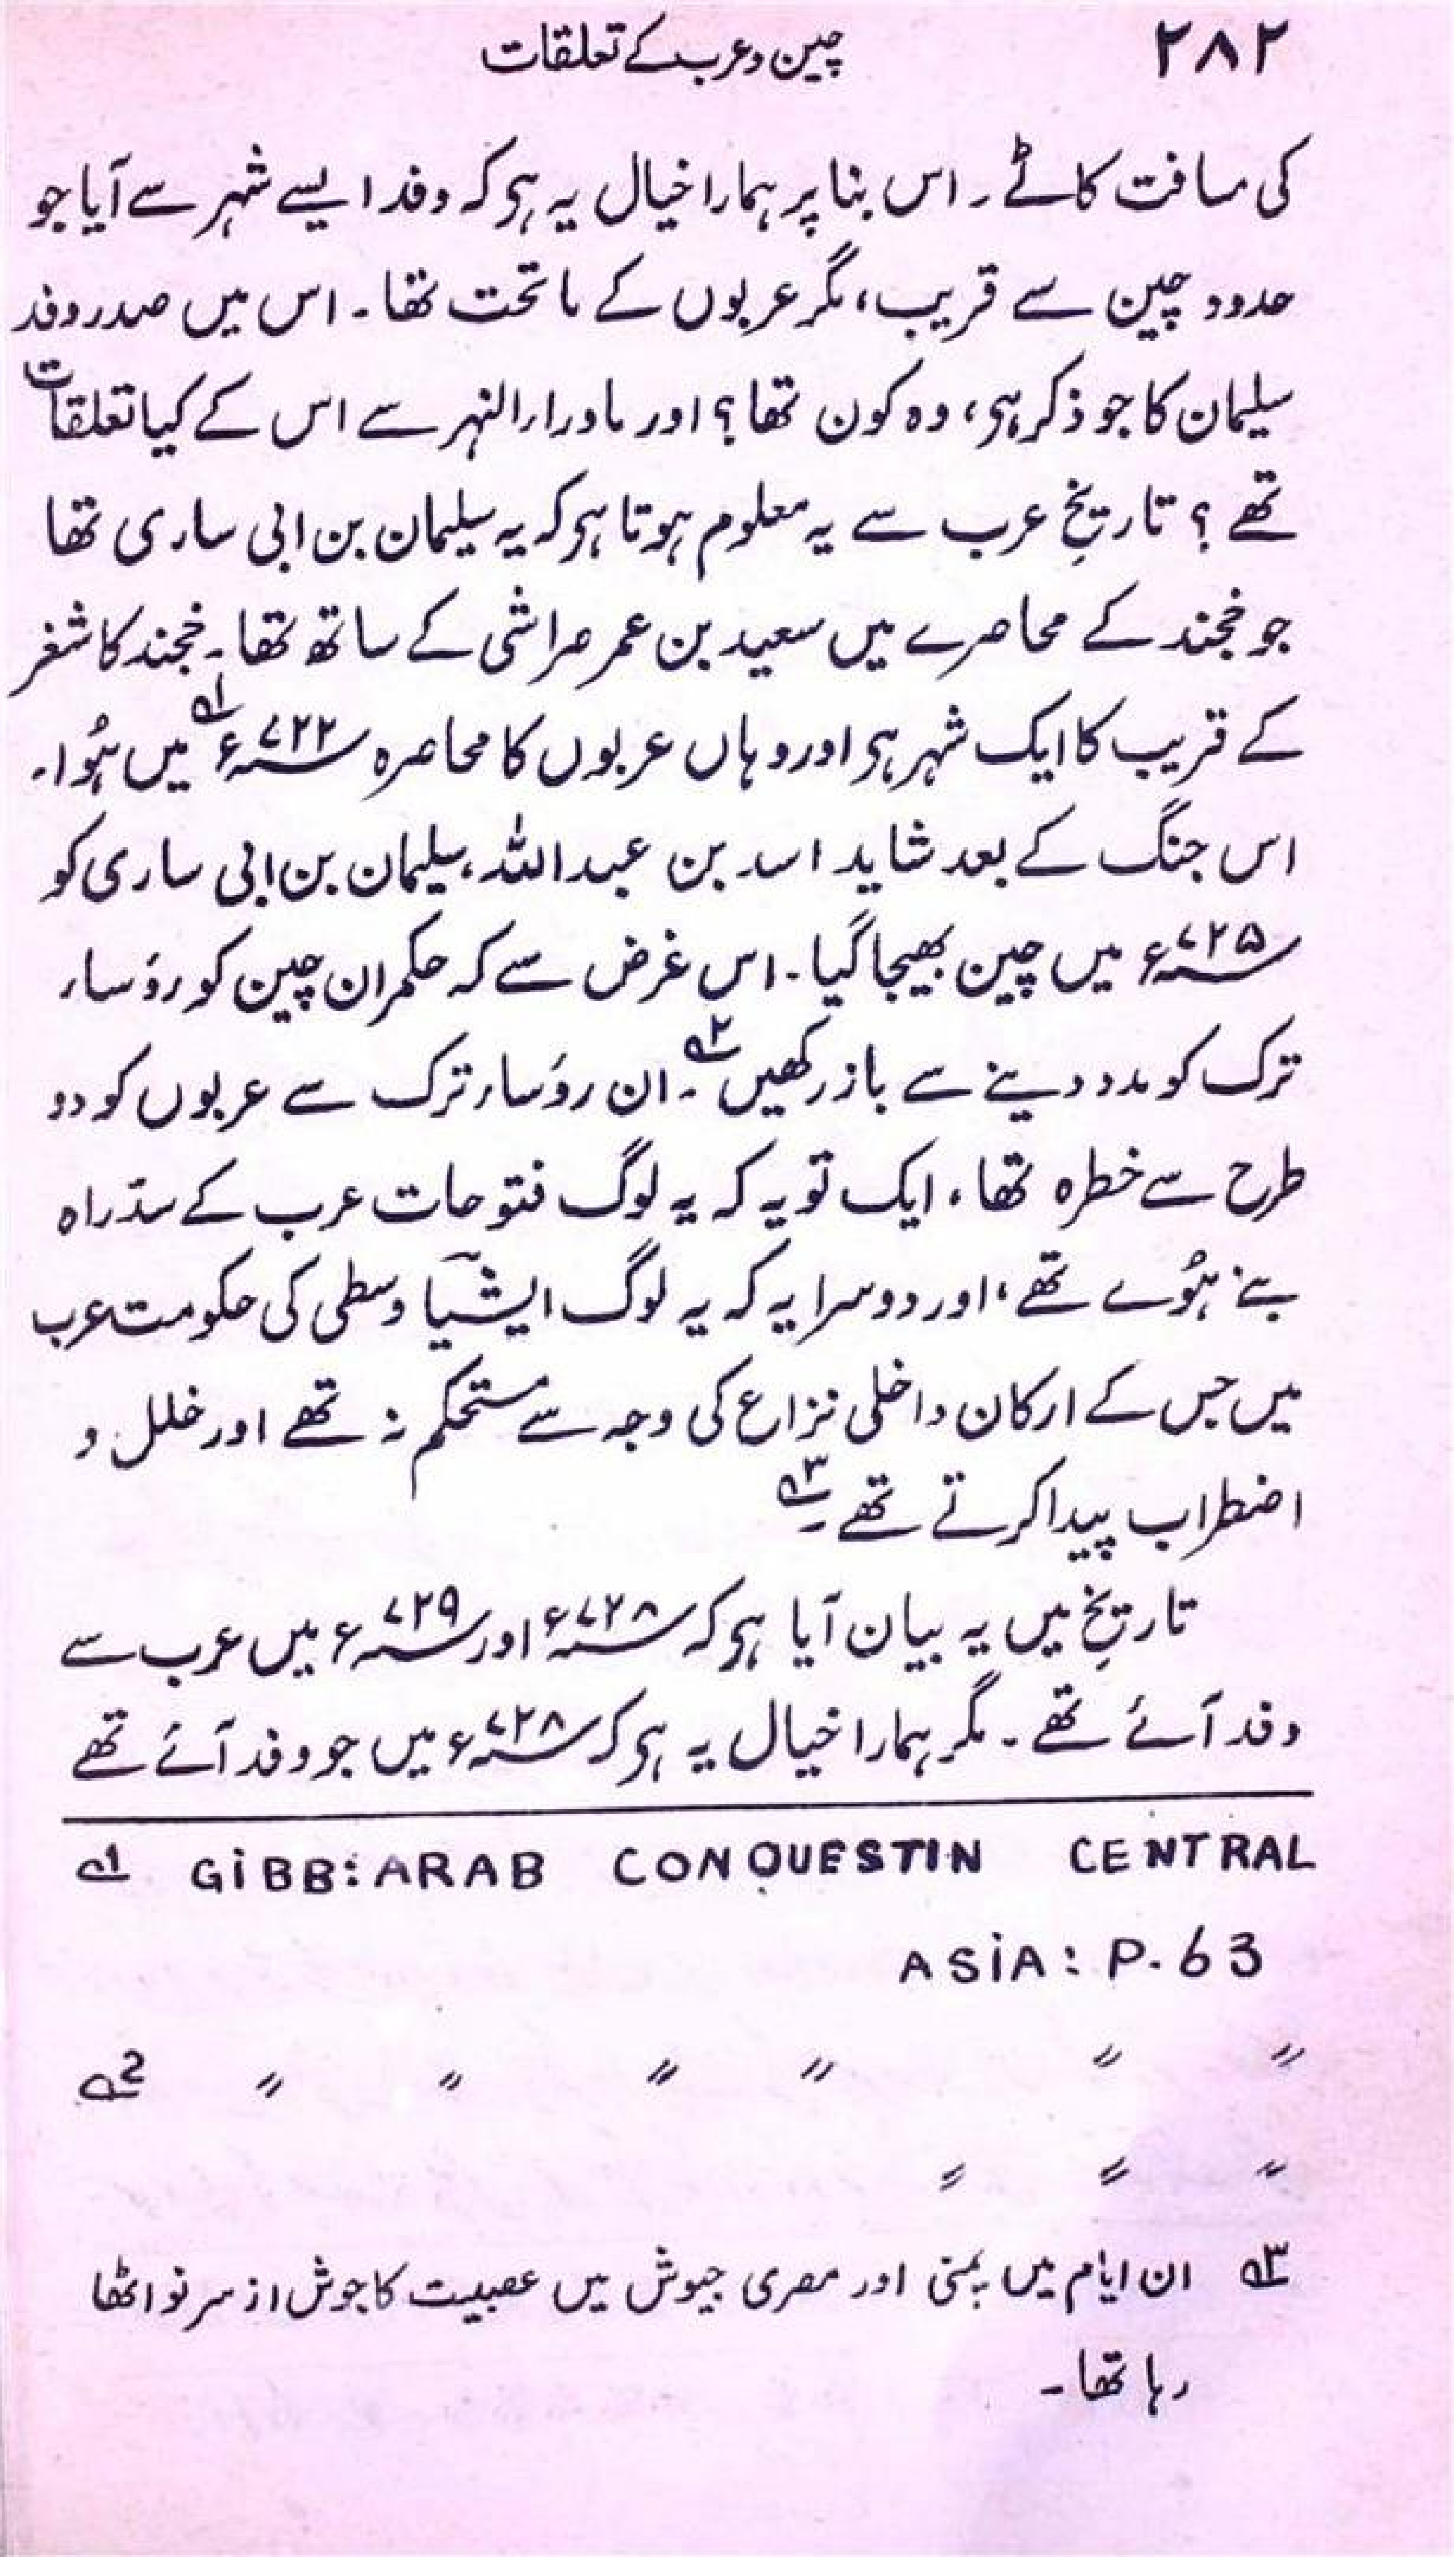 ۲۸۲ چین و عرب کے تعلقات
کی مسافت کاٹے ۔ اس بنا پر ہمارا خیال یہ ہی کہ وفد ایسے شہر سے آیا جو
حدود چین سے قریب، مگر عربوں کے ماتحت تھا ۔ اس میں صدر وفد
سلیمان کا جو ذکر ہی، وہ کون تھا؟ اور ماوراء النہر سے اس کے کیا تعلقات
تھے ؟ تاریخِ عرب سے یہ معلوم ہوتا ہی کہ یہ سلیمان بن ابی ساری تھا
جو خجند کے محاصرے میں سعید بن عمر حراشی کے ساتھ تھا ۔ خجند کاشغر
کے قریب کا ایک شہر ہی اور وہاں عربوں کا محاصرہ ۷۲۲ء؁ ۱؎ میں ہُوا۔
اس جنگ کے بعد شاید اسد بن عبداللہ، سلیمان بن ابی ساری کو
۷۲۵ء؁ میں چین بھیجا گیا ۔ اس غرض سے کہ حکمران چین کو رؤساء
ترک کو مدد دینے سے باز رکھیں ۲؎ ۔ ان رؤساء ترک سے عربوں کو دو
طرح سے خطرہ تھا، ایک تو یہ کہ یہ لوگ فتوحات عرب کے سدّراہ
بنے ہُوے تھے، اور دوسرا یہ کہ یہ لوگ ایشیا وسطی کی حکومت عرب
میں جس کے ارکان داخلی نزاع کی وجہ سے مستحکم نہ تھے اور خلل و
اضطراب پیدا کرتے تھے ۔ ۳؎
تاریخ میں یہ بیان آیا ہی کہ ۷۲۸ء؁ اور ۷۲۹ء؁ میں عرب سے
وفد آئے تھے ۔ مگر ہمارا خیال یہ ہی کہ ۷۲۸ء؁ میں جو وفد آئے تھے
۱؎ GiBB: ARAB CONQUESTIN CENTRAL
ASiA: P. 63
2؎ " " " " " "
" " "
۳؎ ان ایّام میں یمنی اور مصری جیوش میں عصبیت کا جوش از سر نو اٹھا
رہا تھا ۔